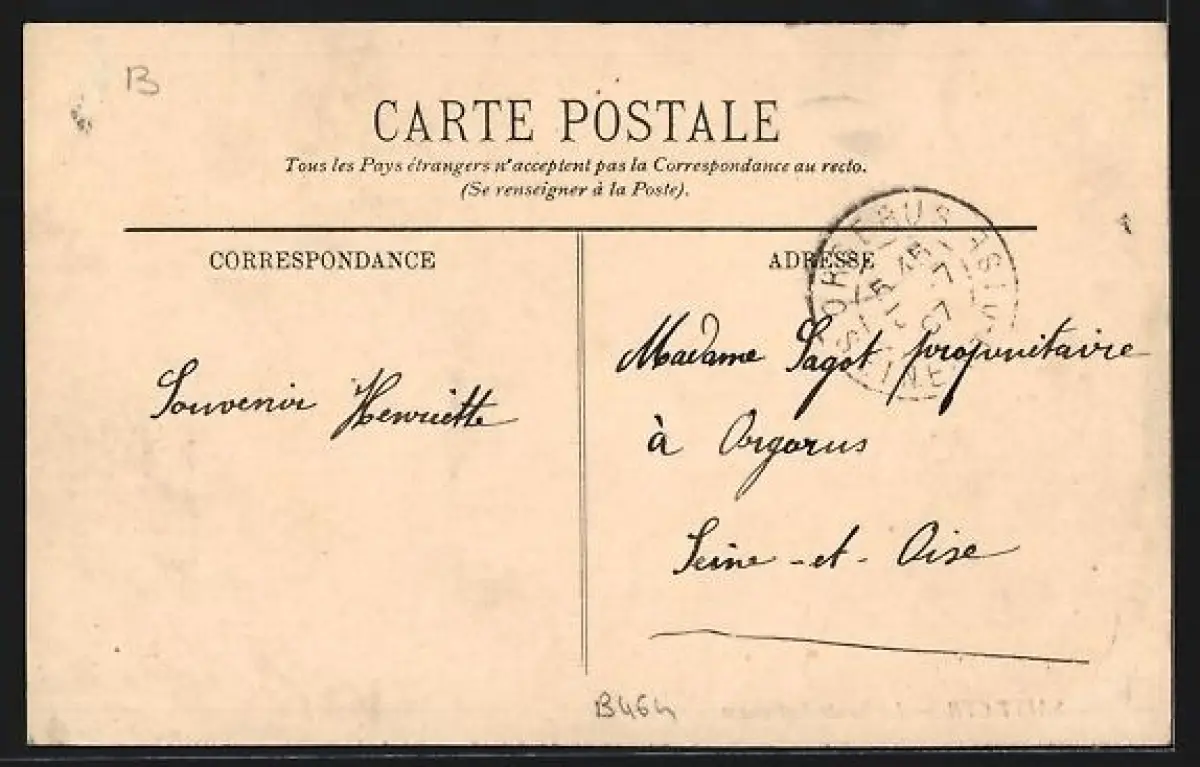 B
CARTE POSTALE
Tous les Pays étrangers n'acceptent pas la Correspondance au recto.
(Se renseigner à la Poste).
CORRESPONDANCE
ADRESSE
Souvenir Henriette
Madame Sagot propriétaire
à Orgerus
Seine-et-Oise
B464